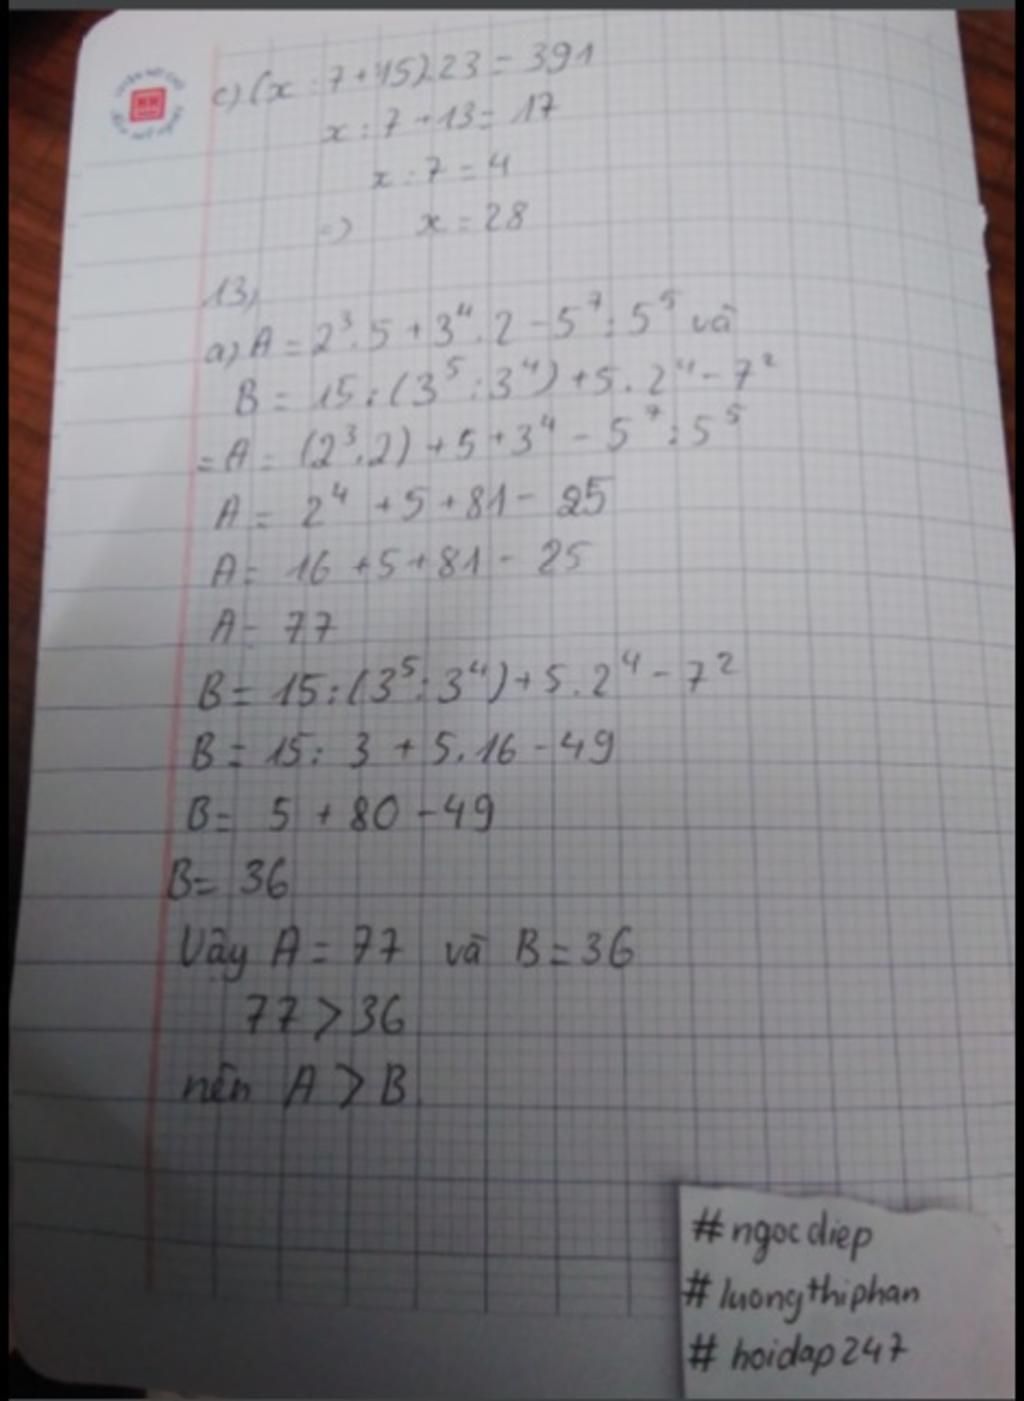 c) (x : 7 + 15) 23 = 391
x : 7 + 13 = 17
x : 7 = 4
=> x = 28
13,
a) A = 2³ . 5 + 3⁴ . 2 - 5⁷ : 5⁵ và
B = 15 : (3⁵ : 3⁴) + 5 . 2⁴ - 7²
= A = (2³ . 2) + 5 + 3⁴ - 5⁷ : 5⁵
A = 2⁴ + 5 + 81 - 25
A = 16 + 5 + 81 - 25
A = 77
B = 15 : (3⁵ : 3⁴) + 5 . 2⁴ - 7²
B = 15 : 3 + 5 . 16 - 49
B = 5 + 80 - 49
B = 36
Vậy A = 77 và B = 36
77 > 36
nên A > B
#ngocdiep
#luongthiphan
#hoidap247